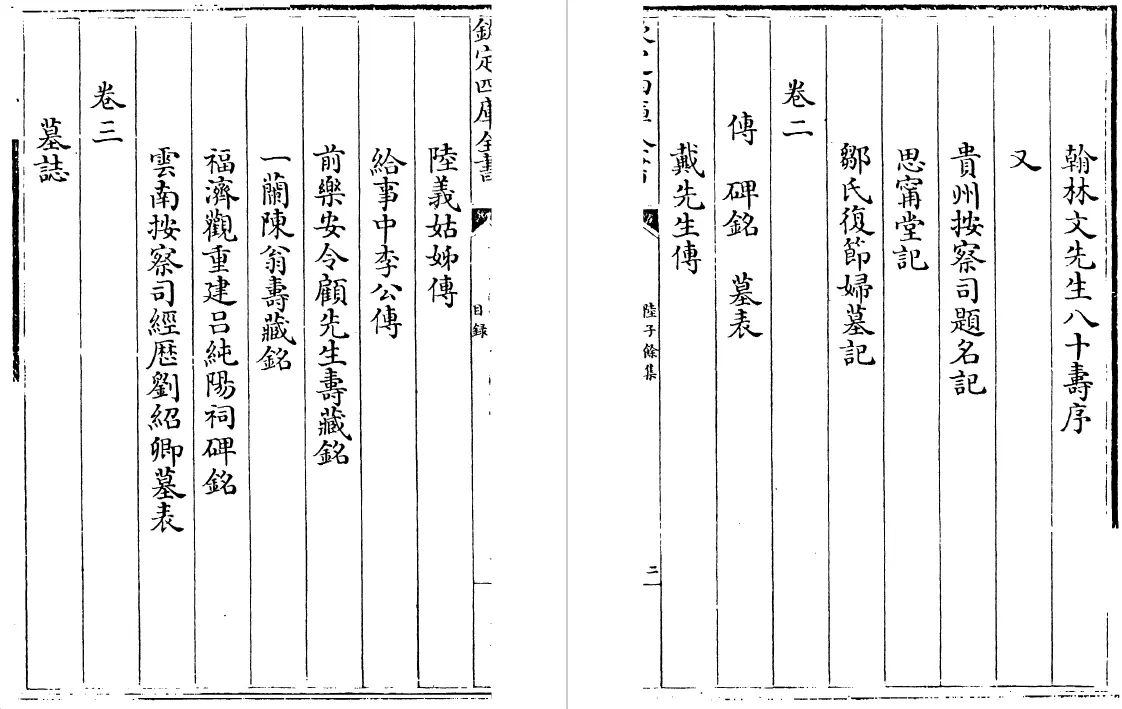 翰林文先生八十壽序
又
貴州按察司題名記
思甯堂記
鄒氏復節婦墓記
卷二
傳 碑銘 墓表
戴先生傳
陸子餘集
二
欽定四庫全書
目録
陸義姑姊傳
給事中李公傳
前樂安令顧先生壽藏銘
一蘭陳翁壽藏銘
福濟觀重建吕純陽祠碑銘
雲南按察司經歷劉紹卿墓表
卷三
墓誌